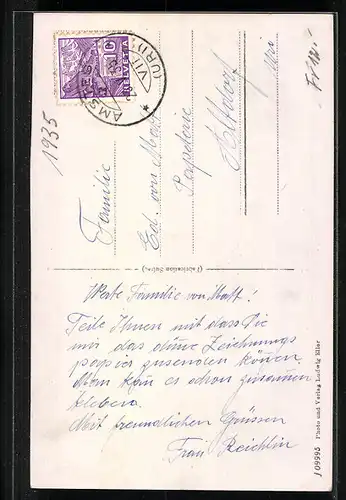 1935
HELVETIA
10
AMSTEG
(URI)
VII
Fr 12.-
Familie
Ed. von Matt
Papeterie
Altdorf
Uri
(Fabrication Suisse)
Werte Familie von Matt!
Teile Ihnen mit dass Sie
mir das dünne Zeichnungs
papier zusenden können.
Man kan es schon zusamen
kleben.
Mit freundlichen Grüssen
Frau Reichlin
J 09995 Photo und Verlag Ludwig Eller